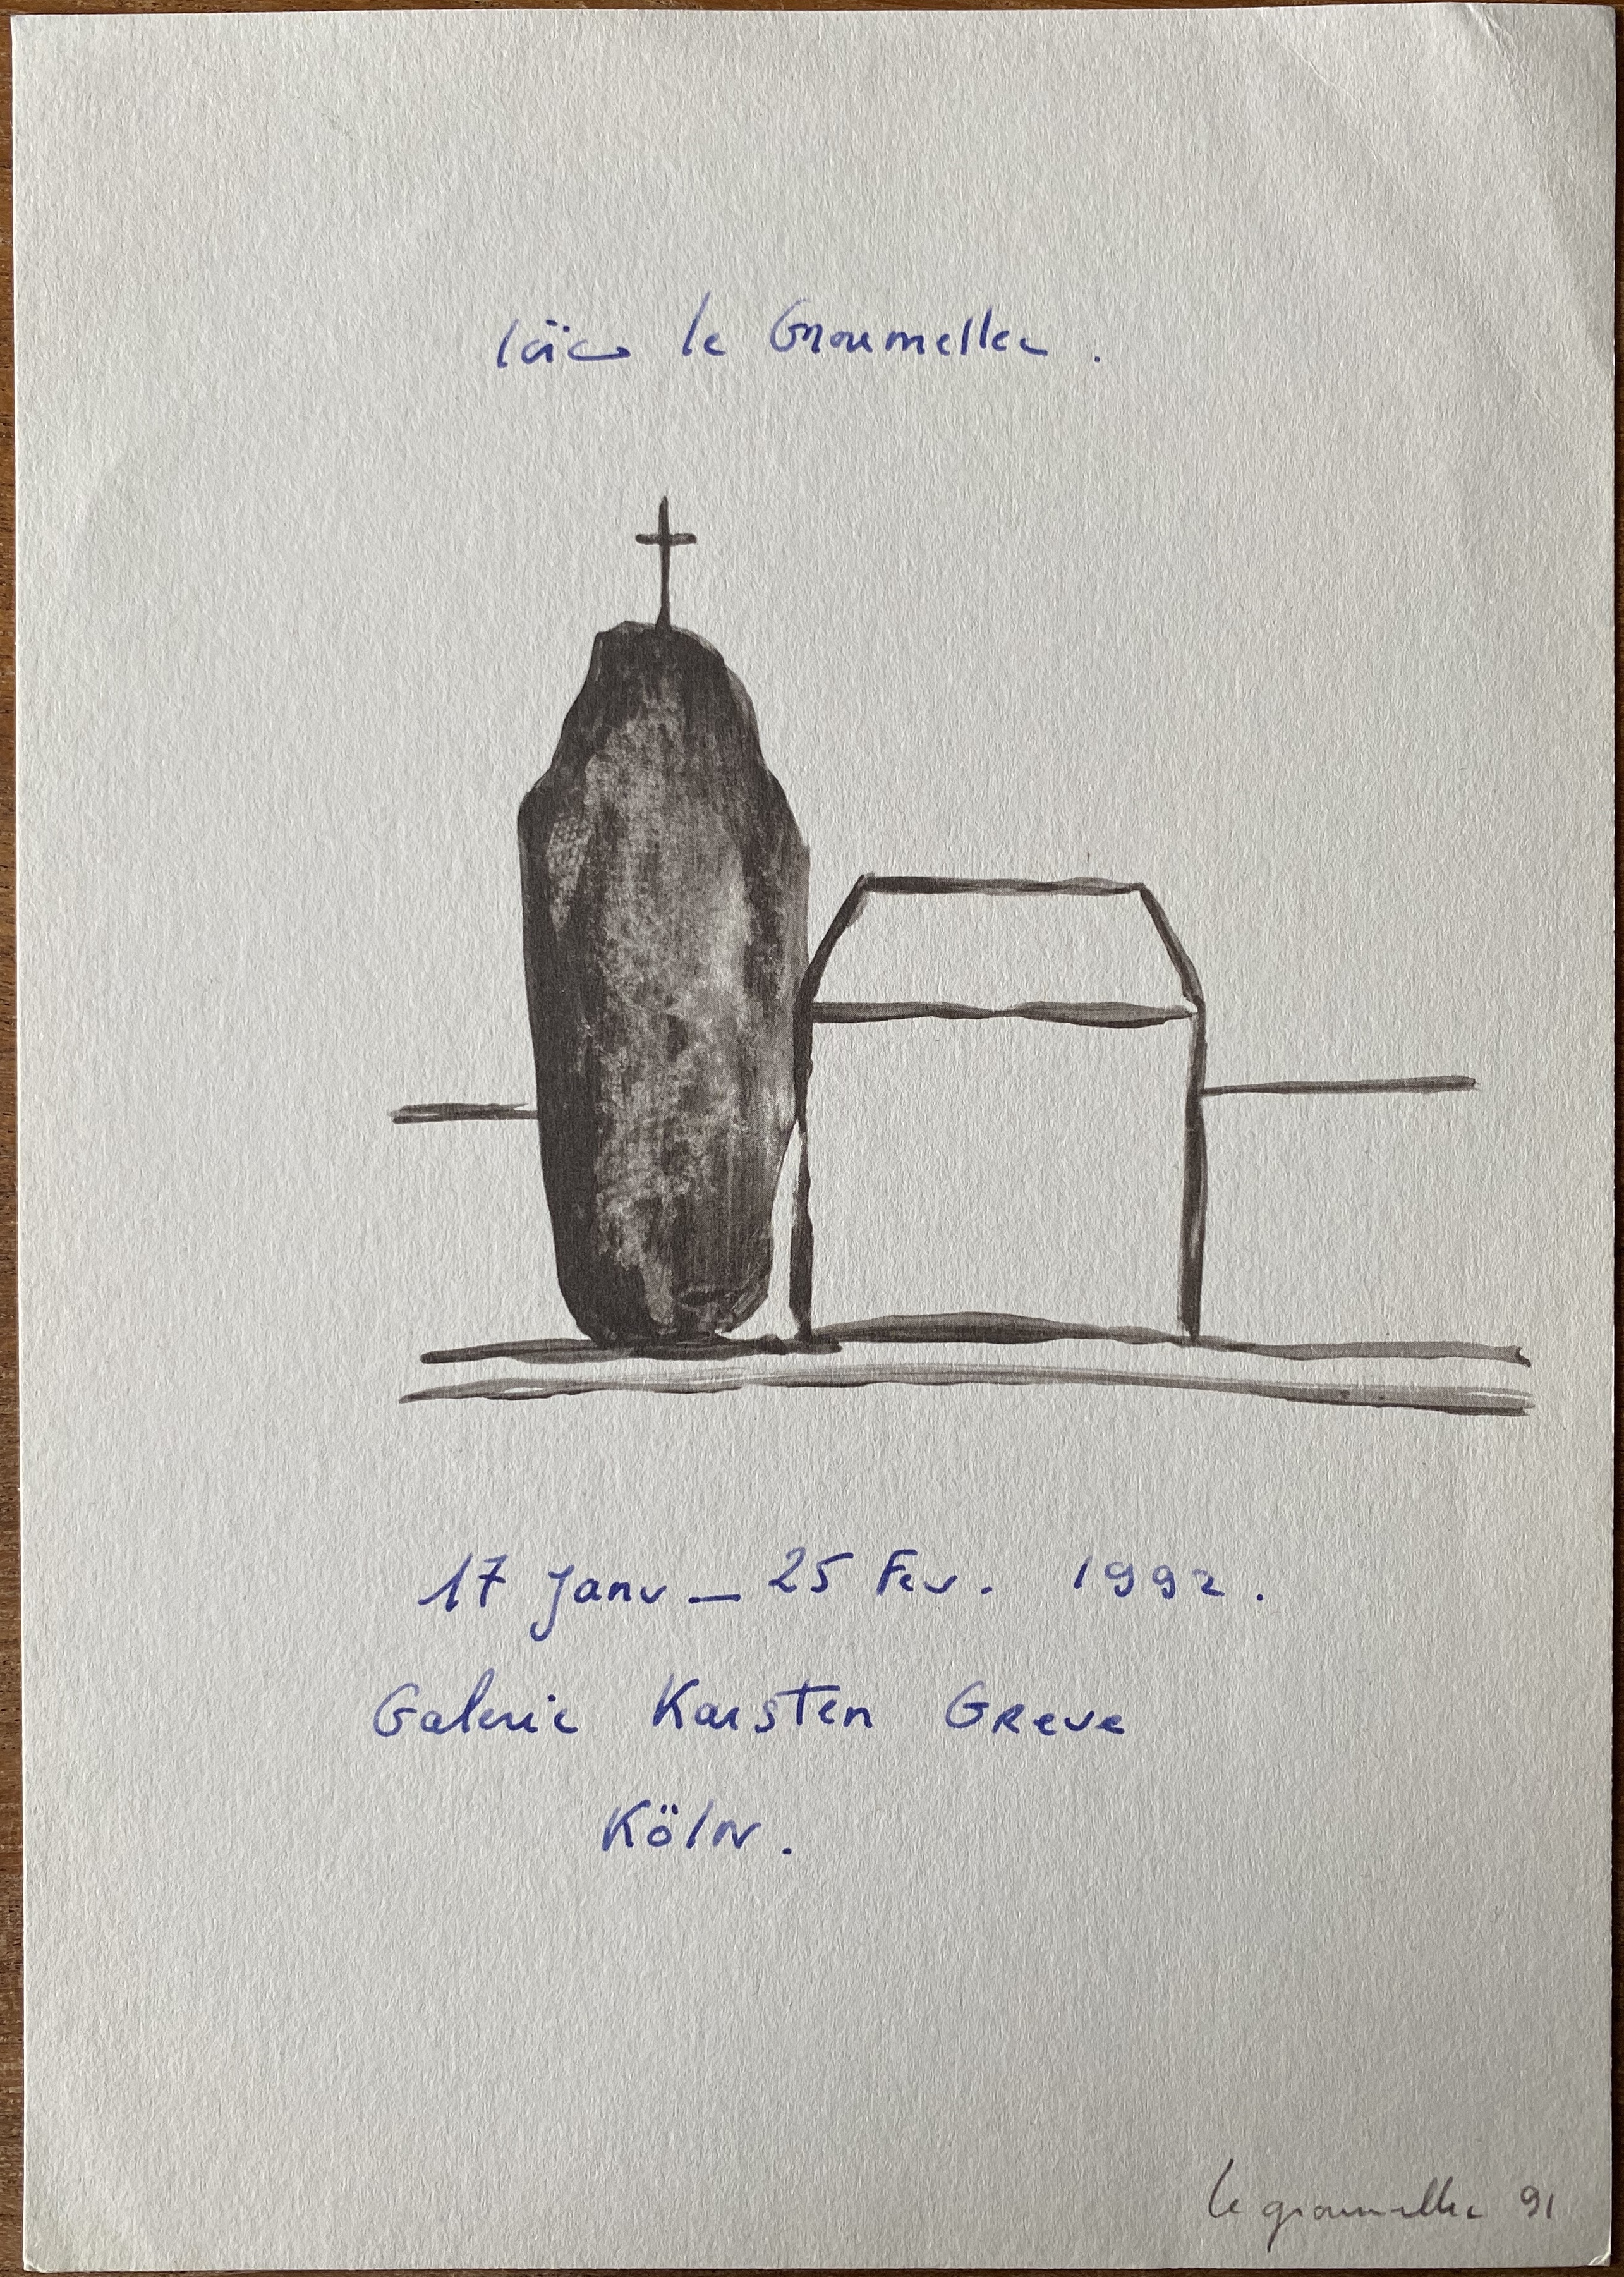 loïc le Groumellec.
17 Janv – 25 Fev. 1992.
Galerie Karsten Greve
Köln.
le groumellec 91